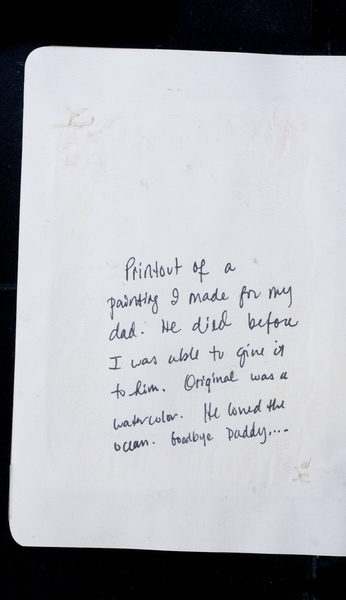 Printout of a
painting I made for my
dad. He died before
I was able to give it
to him. Original was a
watercolor. He loved the
ocean. Goodbye Daddy....